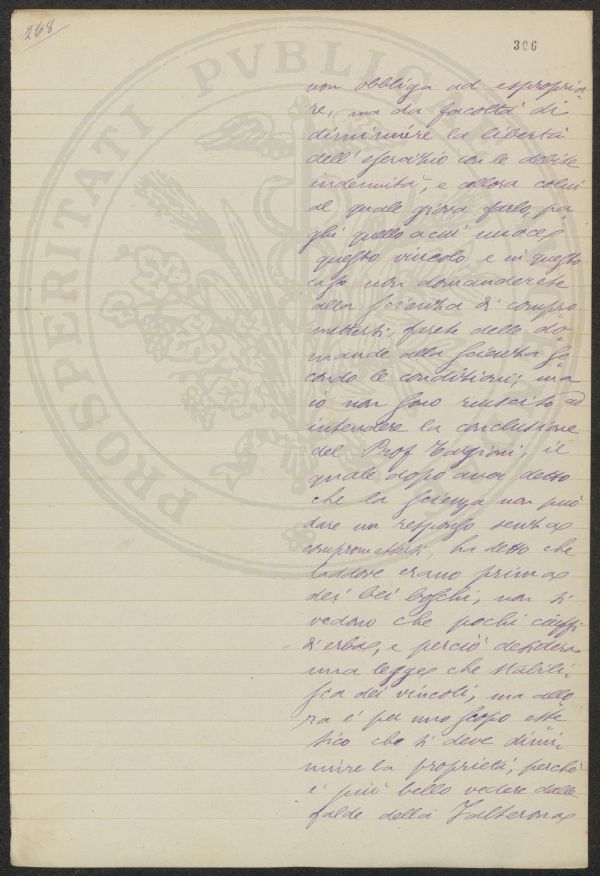 268
306
PROSPERITATI PVBLIC
non obbliga ad espropria=
re, ma da facoltà di
diminuire la libertà
dell'esercizio con le debite
indennità, e allora colui
al quale giova farlo, pa=
ghi quello a cui nuoce
questo vincolo, e in questo
caso non domanderete
alla scienza di compro
mettersi, farete delle do=
mande alla scienza se=
condo le condizioni; ma
io non sono riuscito ad
intendere la conclusione
del Prof Targioni, il
quale dopo aver detto
che la scienza non può
dare un responso senza
compromettersi, ha detto che
laddove erano prima
dei bei boschi, non si
vedono che pochi ciuffi
d'erba, e perciò desidera
una legge che stabili=
sca dei vincoli, ma allo
ra è per uno scopo este
tico che si deve dimi=
nuire la proprietà, perchè
è più bello vedere dalle
falde della Falterona